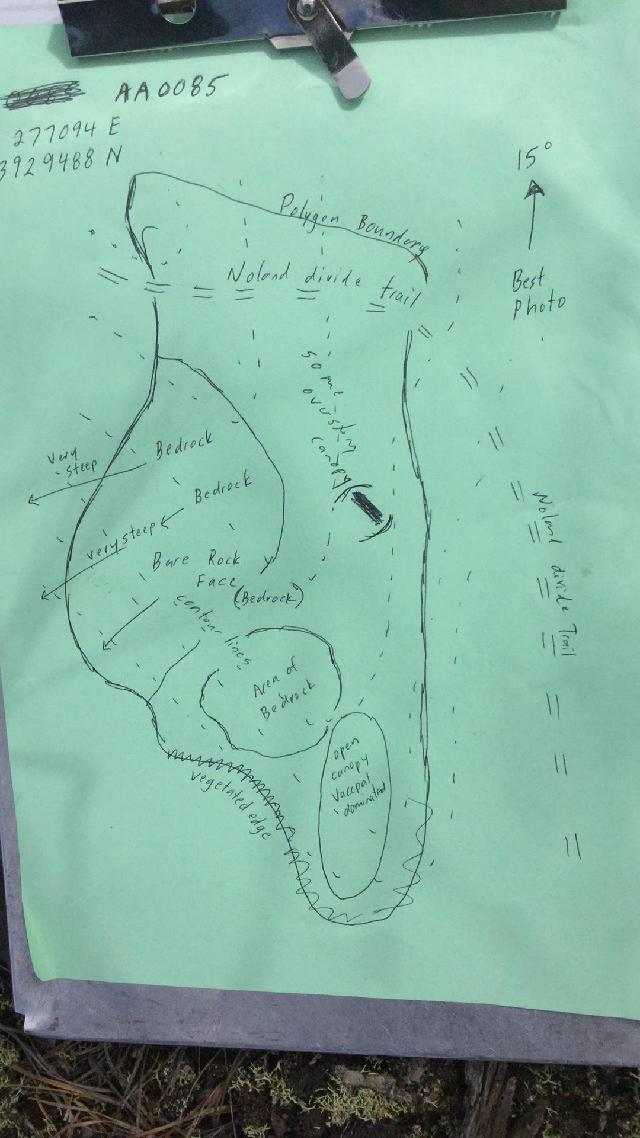 AA0085
277094 E
3929488 N
15°
Best
Photo
Polygon Boundary
Noland divide trail
some
overstory
canopy
Bedrock
very
steep
Bedrock
very steep
Bare Rock
Face
(Bedrock)
contour lines
Noland divide Trail
Area of
Bedrock
open
canopy
Vaccpal
dominated
vegetated edge